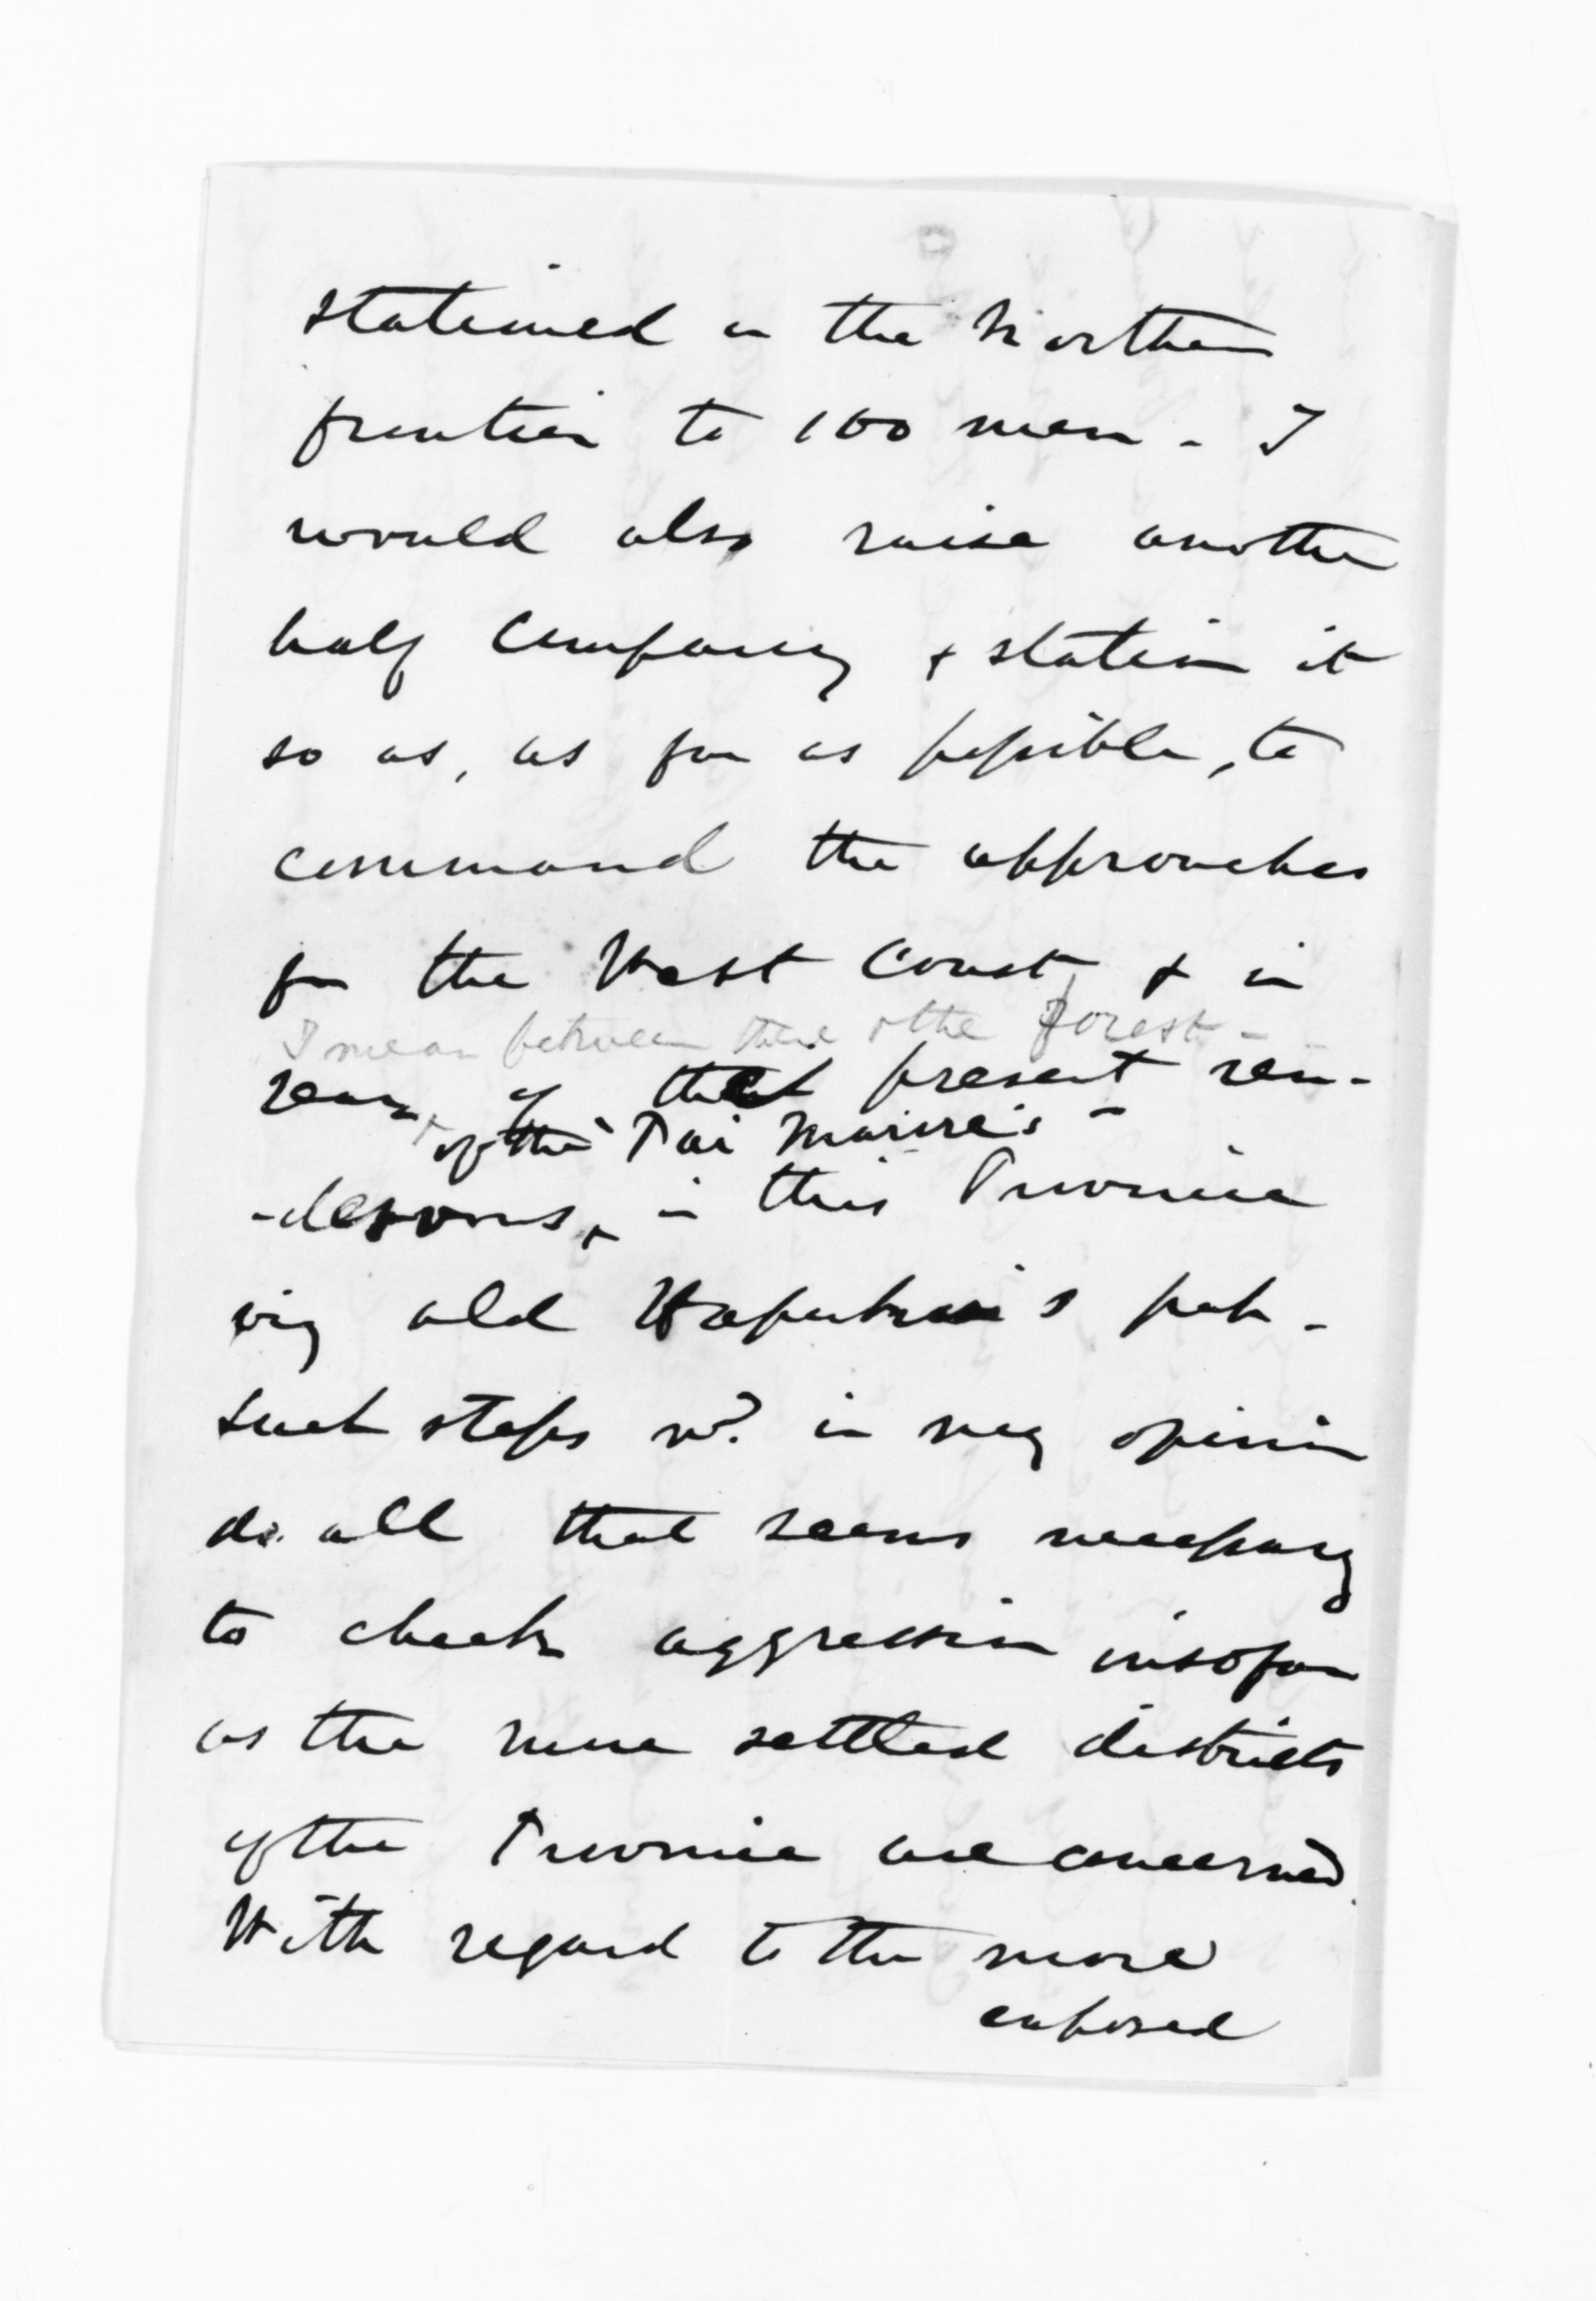 stationed on the Northern
frontier to 100 men - I
would also raise another
half Company & station it
so as, as far as possible, to
command the approaches
fm the West Coast & in
I mean between these & the Forest -
rear of the present ren-
of the Pai Marire's -
-dezvous, in this Province
viz old pah -
such steps wd. in my opinion
do all that seems necessary
to check aggression insofar
as the more settled districts
of the Province are concerned.
With regard to the more
exposed